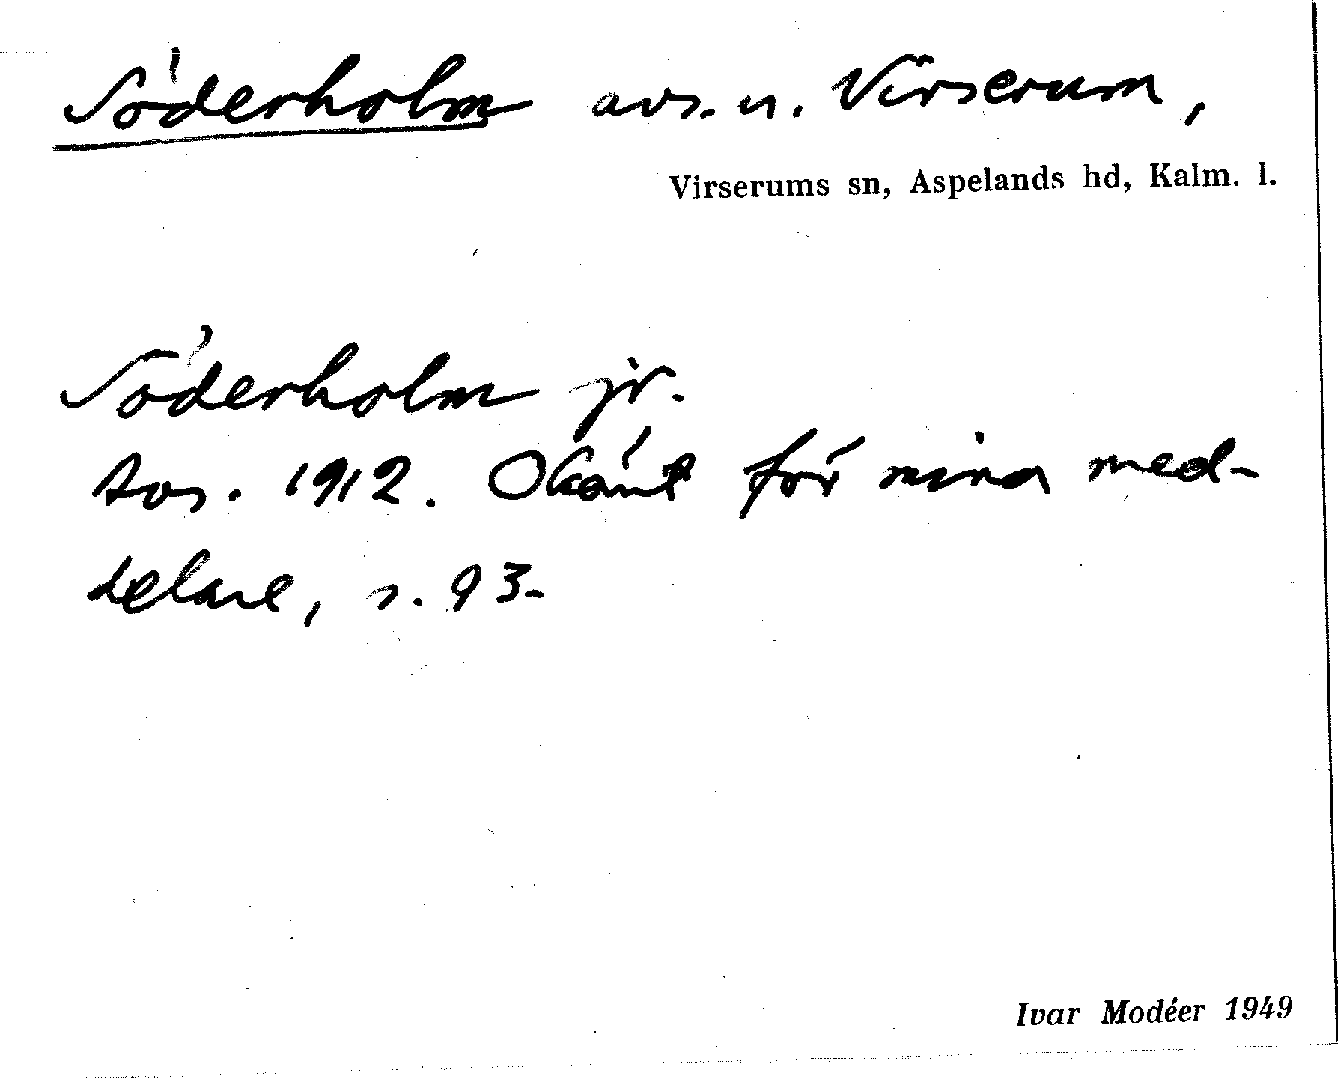 Söderholm avs. u. Virserum,
Virserums sn, Aspelands hd, Kalm. l.
Söderholm jr.
avs. 1912. Okänt för mina med-
delare, s. 93.
Ivar Modéer 1949